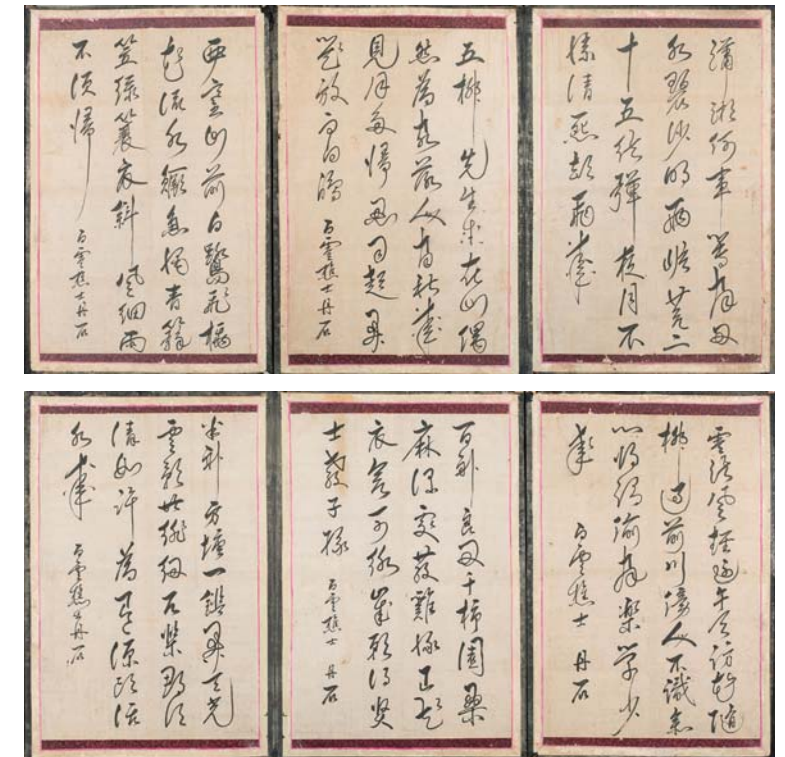 瀟湘何事等閒回
水碧沙明兩岸苔二
十五絃彈夜月不
勝清怨却飛來
五柳先生本在山偶
然為客落人間秋來
見月多歸思自起開
籠放白鷴 白雲樵士丹石
西塞山前白鷺飛桃
花流水鱖魚肥青箬
笠綠簑衣斜風細雨
不須歸 白雲樵士丹石
雲淡風輕近午天訪花隨
柳過前川傍人不識余
心將謂偷閒樂學少
年 白雲樵士 丹石
百畝良田千柿園桑
麻深處散雞豚
衣食可給願得賢
士教子孫 白雲樵士 丹石
半畝方塘一鑑開天光
雲影共徘徊問渠那得
清如許為有源頭活
水來 白雲樵士丹石